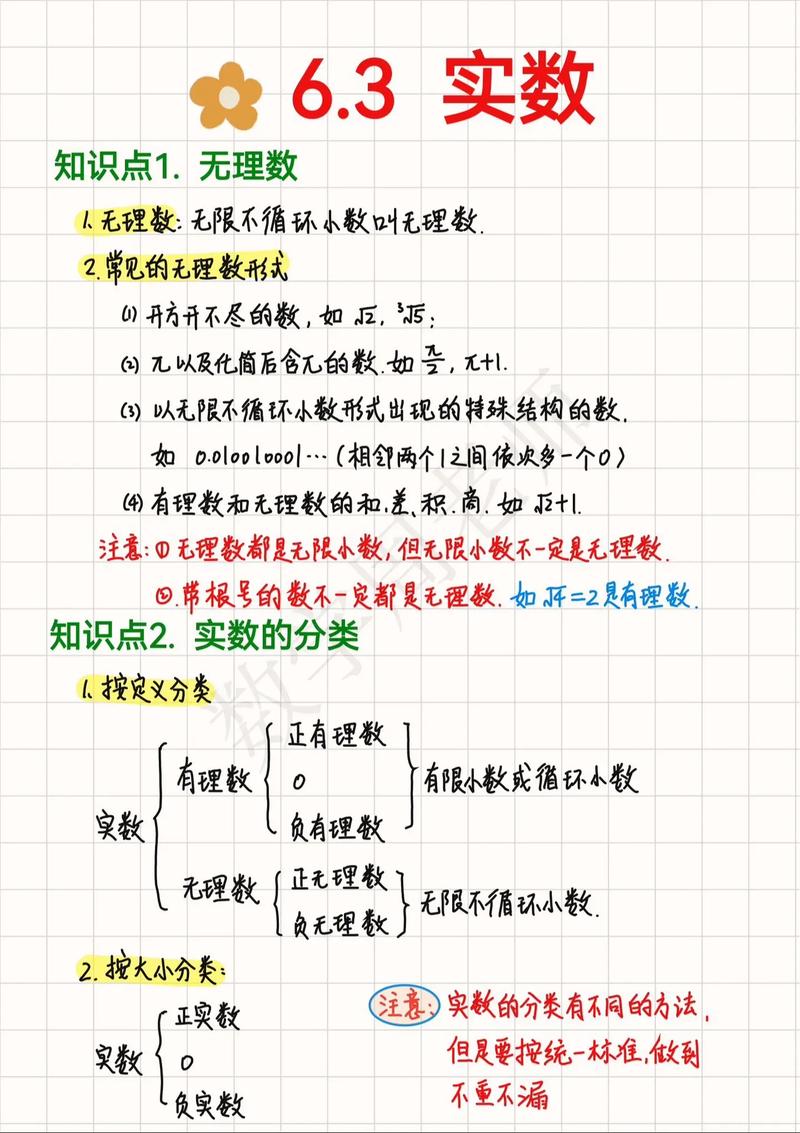 6.3 实数
知识点1. 无理数
1.无理数: 无限不循环小数叫无理数.
2.常见的无理数形式
(1) 开方开不尽的数, 如 √2, ³√5;
(2) π以及化简后含π的数.如 π/2, π+1.
(3) 以无限不循环小数形式出现的特殊结构的数.
如 0.010010001…(相邻两个1之间依次多一个0)
(4) 有理数和无理数的和、差、积、商. 如 √2+1.
注意:①无理数都是无限小数,但无限小数不一定是无理数.
②.带根号的数不一定都是无理数. 如√4=2是有理数.
知识点2. 实数的分类
1.按定义分类
实数
有理数
正有理数
0
负有理数
有限小数或循环小数
无理数
正无理数
负无理数
无限不循环小数.
2.按大小分类:
实数
正实数
0
负实数
注意: 实数的分类有不同的方法,
但是要按统一标准,做到
不重不漏
数学周老师